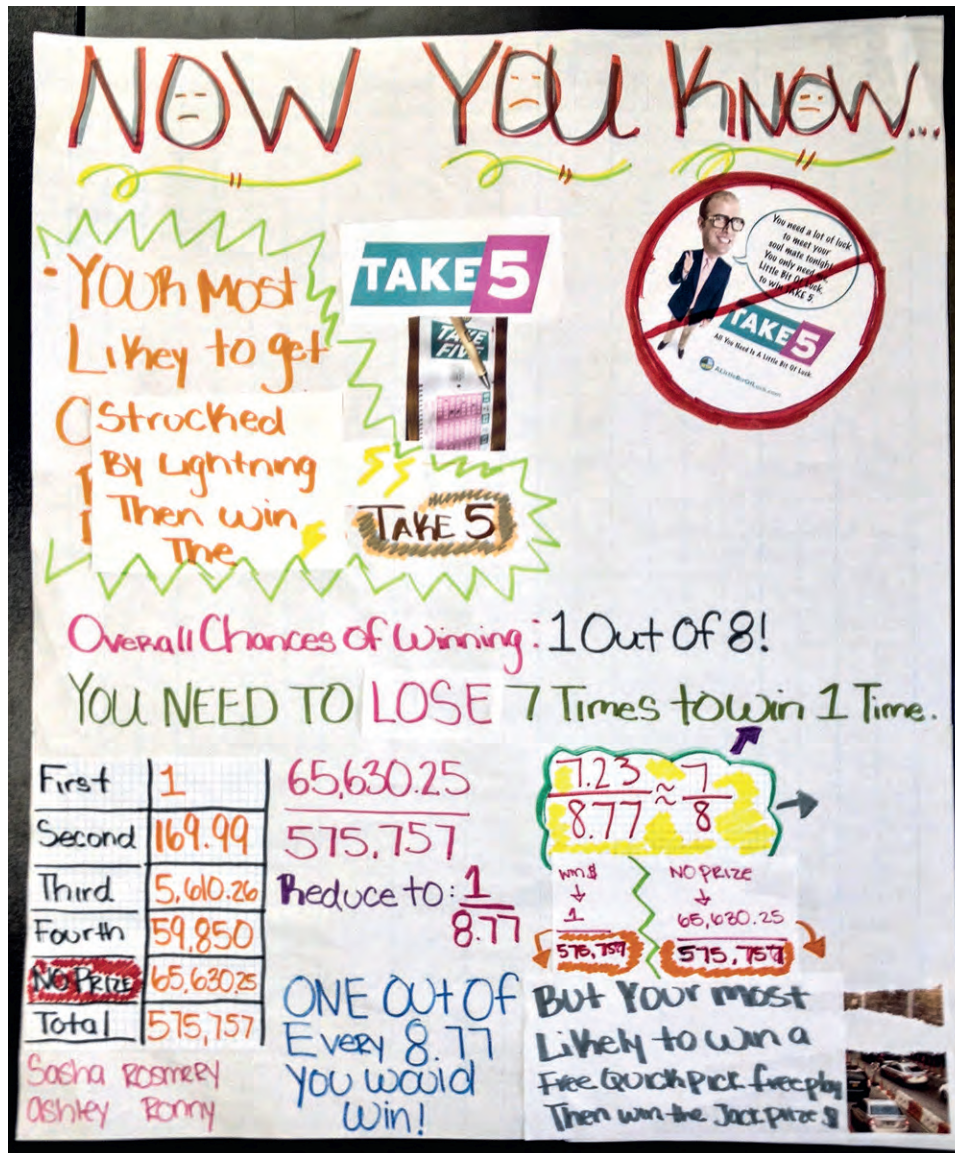 NOW YOU KNOW...
• YOUR MOST
Likey to get
Strucked
By Lightning
Then win
The
TAKE 5
TAKE
FIVE
TAKE 5
You need a lot of luck
to meet your
soul mate tonight.
You only need a
Little Bit Of Luck
to win TAKE 5.
TAKE 5
All You Need Is A Little Bit Of Luck.
ALittleBitOfLuck.com
Overall Chances Of Winning: 1 Out Of 8!
YOU NEED TO LOSE 7 Times to Win 1 Time.
First 1
Second 169.99
Third 5,610.26
Fourth 59,850
NO PRIZE 65,630.25
Total 575,757
Sasha Rosmery
Ashley Ronny
65,630.25
575,757
Reduce to: 1
8.77
ONE OUT OF
Every 8.77
You would
Win!
7.23 ≈ 7
8.77 8
win $ NO PRIZE
1 65,630.25
575,757 575,757
But Your most
Likely to win a
Free Quick Pick free play
Then win the Jack prize $